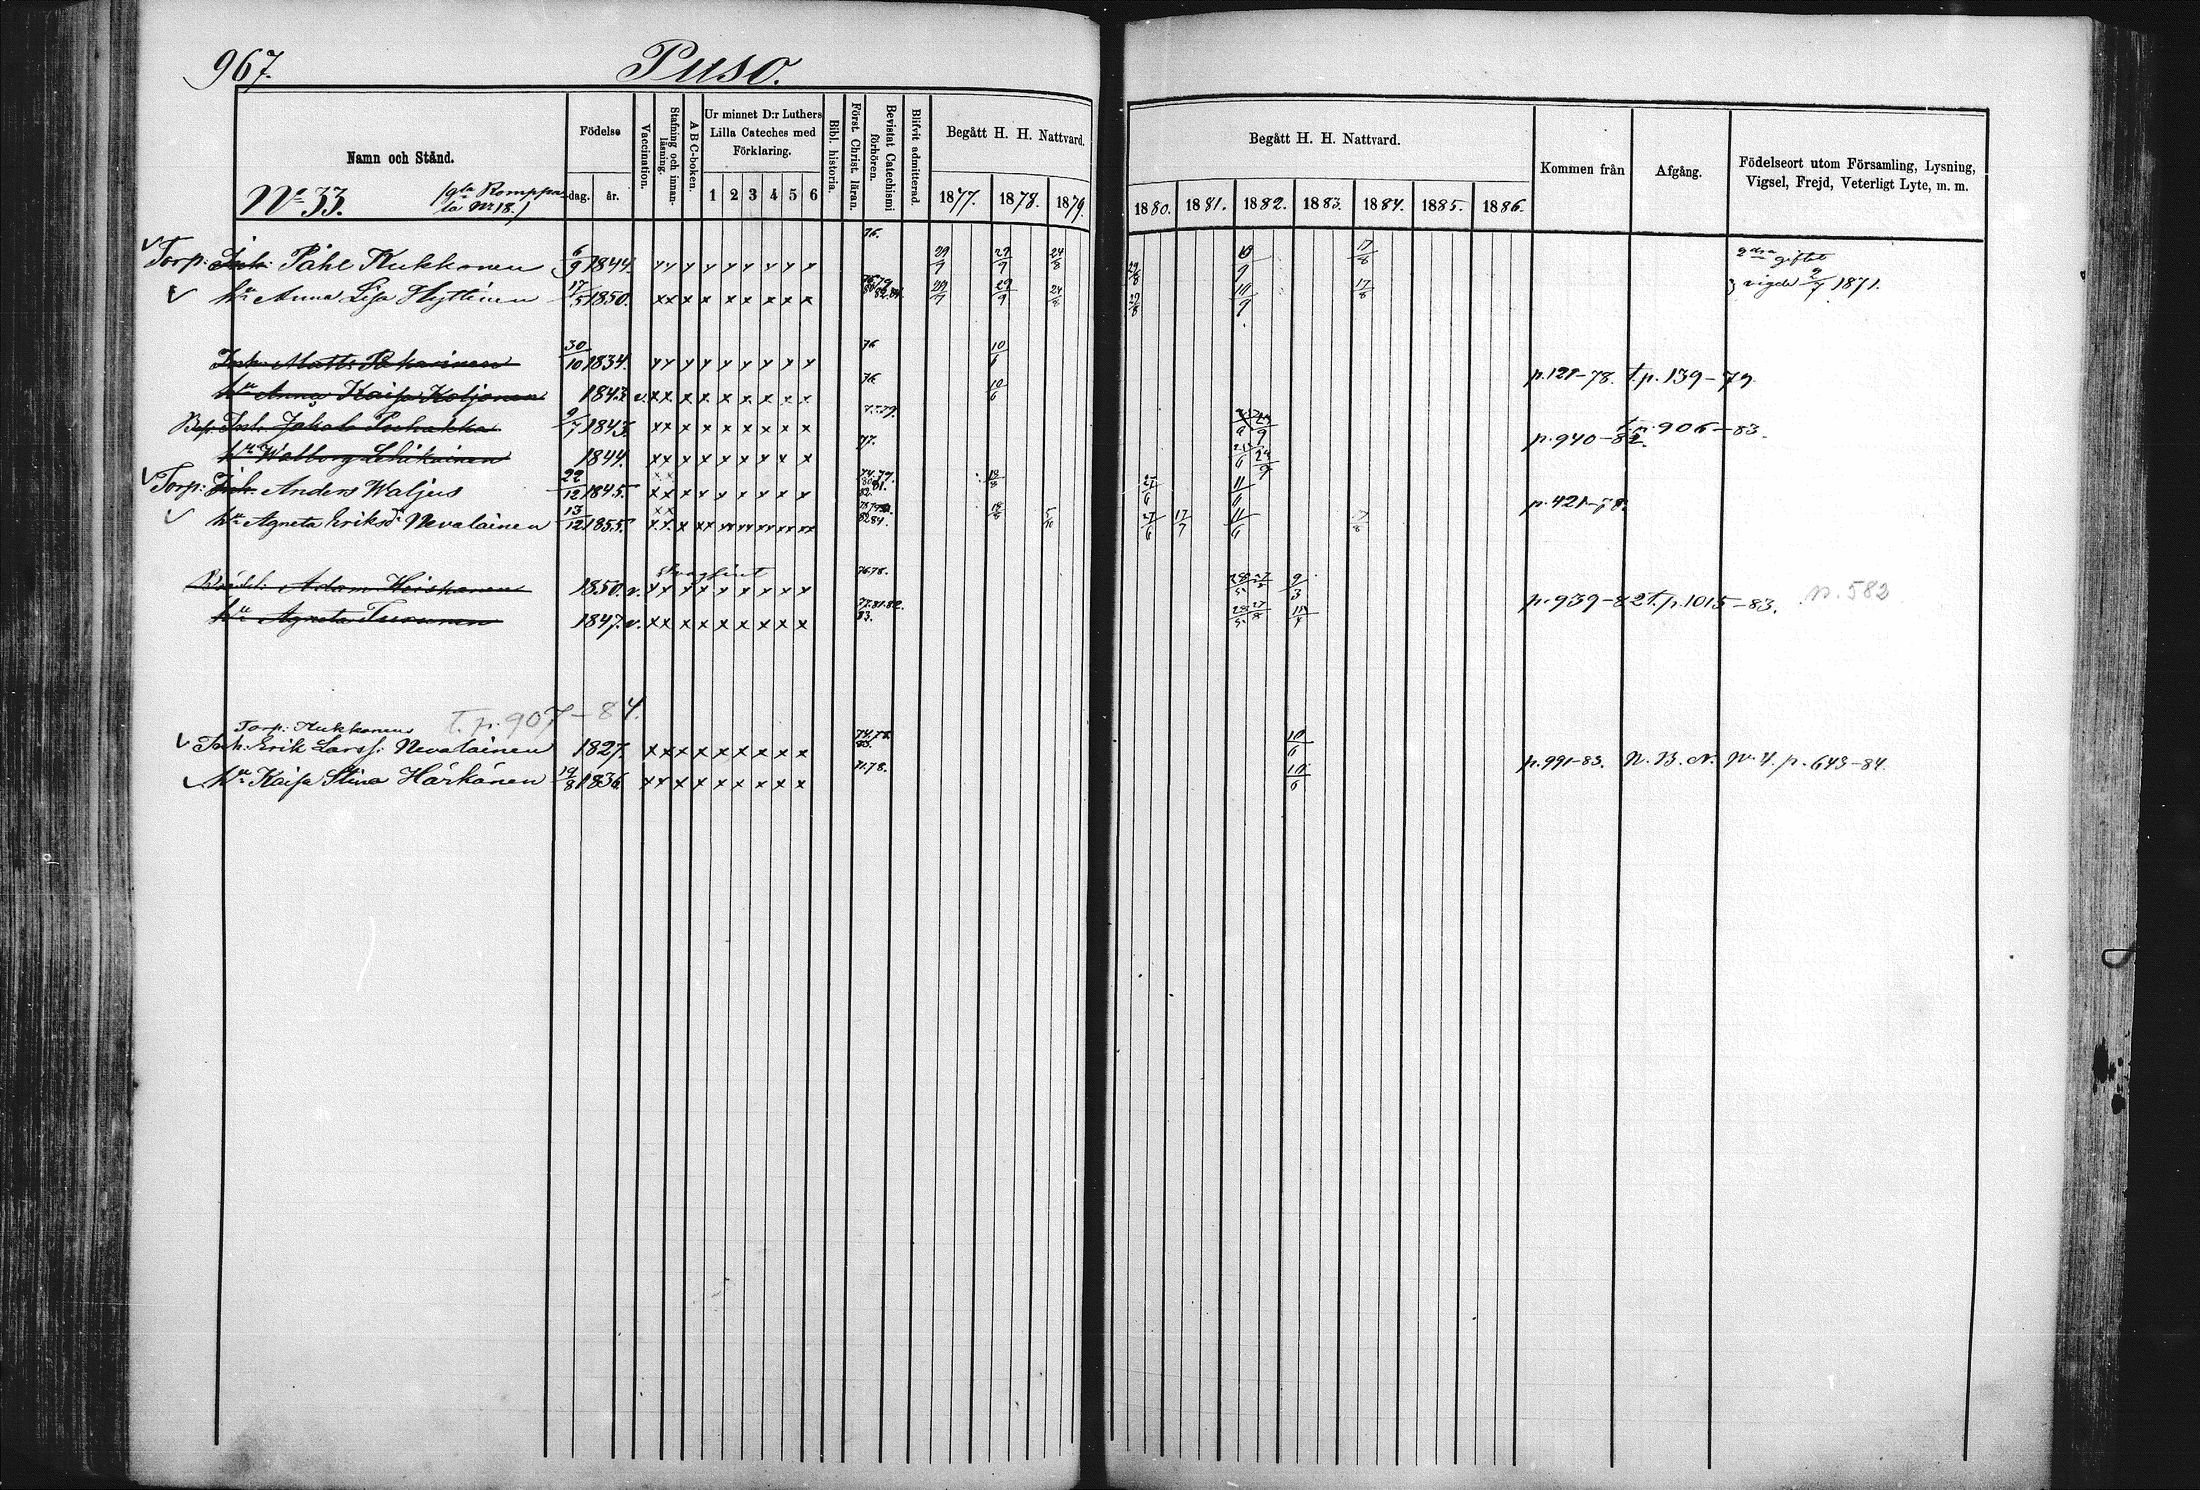 967.
Puso.
Namn och Stånd.
Födelse
dag. år.
Vaccination.
Stafning och innanläsning.
A B C-boken.
Ur minnet D:r Luthers Lilla Cateches med Förklaring.
1 2 3 4 5 6
Bibl. historia.
Först. Christ. läran.
Bevistat Catechismi förhören.
Blifvit admitterad.
Begått H. H. Nattvard.
1877. 1878. 1879.
Begått H. H. Nattvard.
1880. 1881. 1882. 1883. 1884. 1885. 1886.
Kommen från
Afgång.
Födelseort utom Församling, Lysning, Vigsel, Frejd, Veterligt Lyte, m. m.
No 33.
Romppa
la No 18.)
Torp: Inh: Påhl Kukkonen 6/9 1844. x x x x x x x x x 76. 29/9 29/9 24/8 29/8 10/9 17/8 2dra giftet
hu Anna Lisa Hyttinen 17/5 1850. x x x x x x x x x 29/9 29/9 24/8 29/8 10/9 17/8 vigde 2/7 1871.
Inh: Matts 30/10 1834. x x x x x x x x x 76 10/6 p. 121-78. t.p. 139-79
hu Anna Kaisa Koljonen 1843 v. x x x x x x x x x 76. 10/6
Inh: Jakob 9/7 1843. x x x x x x x x x p. 940-82. t.p. 906-83.
hu Walborg 1844. x x x x x x x x x 77.
Torp: Inh: Anders Waljus 22/12 1845. x x x x x x x x x 18/8 27/6 11/6 p. 421-78.
hu Agneta Eriksd: Nevalainen 13/12 1855. 18/8 5/10 27/6 17/7 11/6 17/8
Adam Heiskanen 1850. v. x x x x x x x x x 76.78. 9/3 p. 939-82 t.p. 1015-83. p. 582
hu Agneta Turunen 1847. v. x x x x x x x x x 77.81.82. 83.
t.p. 907-84.
Torp: Kukkonens
Inh: Erik Larss: Nevalainen 1827. x x x x x x x x x 10/6 p. 991-83. N. B. N. No 4. p. 643-84.
hu Kaisa Stina Härkönen 19/8 1836 x x x x x x x x x 10/6